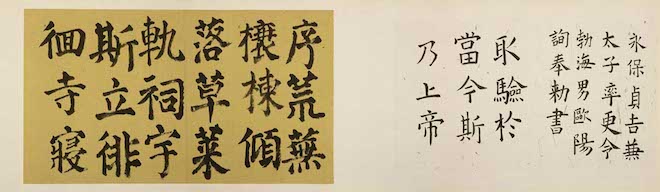 永保貞吉兼
太子率更令
勃海男歐陽
詢奉勅書
取驗於
當今斯
乃上帝
序荒蕪
榱棟傾
落草萊
軌祠宇
斯立徘
徊寺寢